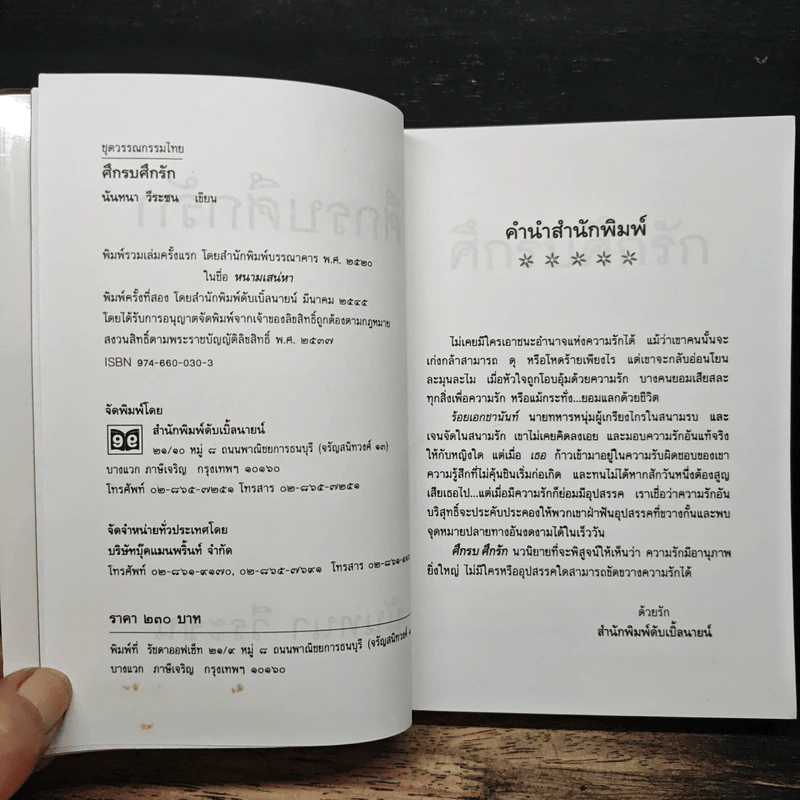 ชุดวรรณกรรมไทย
ศึกรบศึกรัก
นันทนา วีระชน เขียน
พิมพ์รวมเล่มครั้งแรก โดยสำนักพิมพ์บรรณาคาร พ.ศ. ๒๕๒๐
ในชื่อ หนามเสน่หา
พิมพ์ครั้งที่สอง โดยสำนักพิมพ์ดับเบิ้ลนายน์ มีนาคม ๒๕๔๕
โดยได้รับการอนุญาตจัดพิมพ์จากเจ้าของลิขสิทธิ์ถูกต้องตามกฎหมาย
สงวนสิทธิ์ตามพระราชบัญญัติลิขสิทธิ์ พ.ศ. ๒๕๓๗
ISBN 974-660-030-3
จัดพิมพ์โดย
สำนักพิมพ์ดับเบิ้ลนายน์
๒๑/๑๐ หมู่ ๘ ถนนพาณิชยการธนบุรี (จรัญสนิทวงศ์ ๑๓)
บางแวก ภาษีเจริญ กรุงเทพฯ ๑๐๑๖๐
โทรศัพท์ ๐๒-๘๖๕-๗๒๕๑ โทรสาร ๐๒-๘๖๕-๗๒๕๑
จัดจำหน่ายทั่วประเทศโดย
บริษัทบุ๊คแมนพริ้นท์ จำกัด
โทรศัพท์ ๐๒-๘๖๑-๙๑๗๐, ๐๒-๘๖๕-๗๖๙๑ โทรสาร
ราคา ๒๓๐ บาท
พิมพ์ที่ รัชดาออฟเซ็ท ๒๑/๙ หมู่ ๘ ถนนพาณิชยการธนบุรี (จรัญสนิทวงศ์
บางแวก ภาษีเจริญ กรุงเทพฯ ๑๐๑๖๐
คำนำสำนักพิมพ์
ไม่เคยมีใครเอาชนะอำนาจแห่งความรักได้ แม้ว่าเขาคนนั้นจะ
เก่งกล้าสามารถ ดุ หรือโหดร้ายเพียงไร แต่เขาจะกลับอ่อนโยน
ละมุนละไม เมื่อหัวใจถูกโอบอุ้มด้วยความรัก บางคนยอมเสียสละ
ทุกสิ่งเพื่อความรัก หรือแม้กระทั่ง...ยอมแลกด้วยชีวิต
ร้อยเอกชานันท์ นายทหารหนุ่มผู้เกรียงไกรในสนามรบ และ
เจนจัดในสนามรัก เขาไม่เคยคิดลงเอย และมอบความรักอันแท้จริง
ให้กับหญิงใด แต่เมื่อ เธอ ก้าวเข้ามาอยู่ในความรับผิดชอบของเขา
ความรู้สึกที่ไม่คุ้นชินเริ่มก่อเกิด และทนไม่ได้หากสักวันหนึ่งต้องสูญ
เสียเธอไป...แต่เมื่อมีความรักก็ย่อมมีอุปสรรค เราเชื่อว่าความรักอัน
บริสุทธิ์จะประคับประคองให้พวกเขาฝ่าฟันอุปสรรคที่ขวางกั้นและพบ
จุดหมายปลายทางอันงดงามได้ในเร็ววัน
ศึกรบ ศึกรัก นวนิยายที่จะพิสูจน์ให้เห็นว่า ความรักมีอานุภาพ
ยิ่งใหญ่ ไม่มีใครหรืออุปสรรคใดสามารถขัดขวางความรักได้
ด้วยรัก
สำนักพิมพ์ดับเบิ้ลนายน์